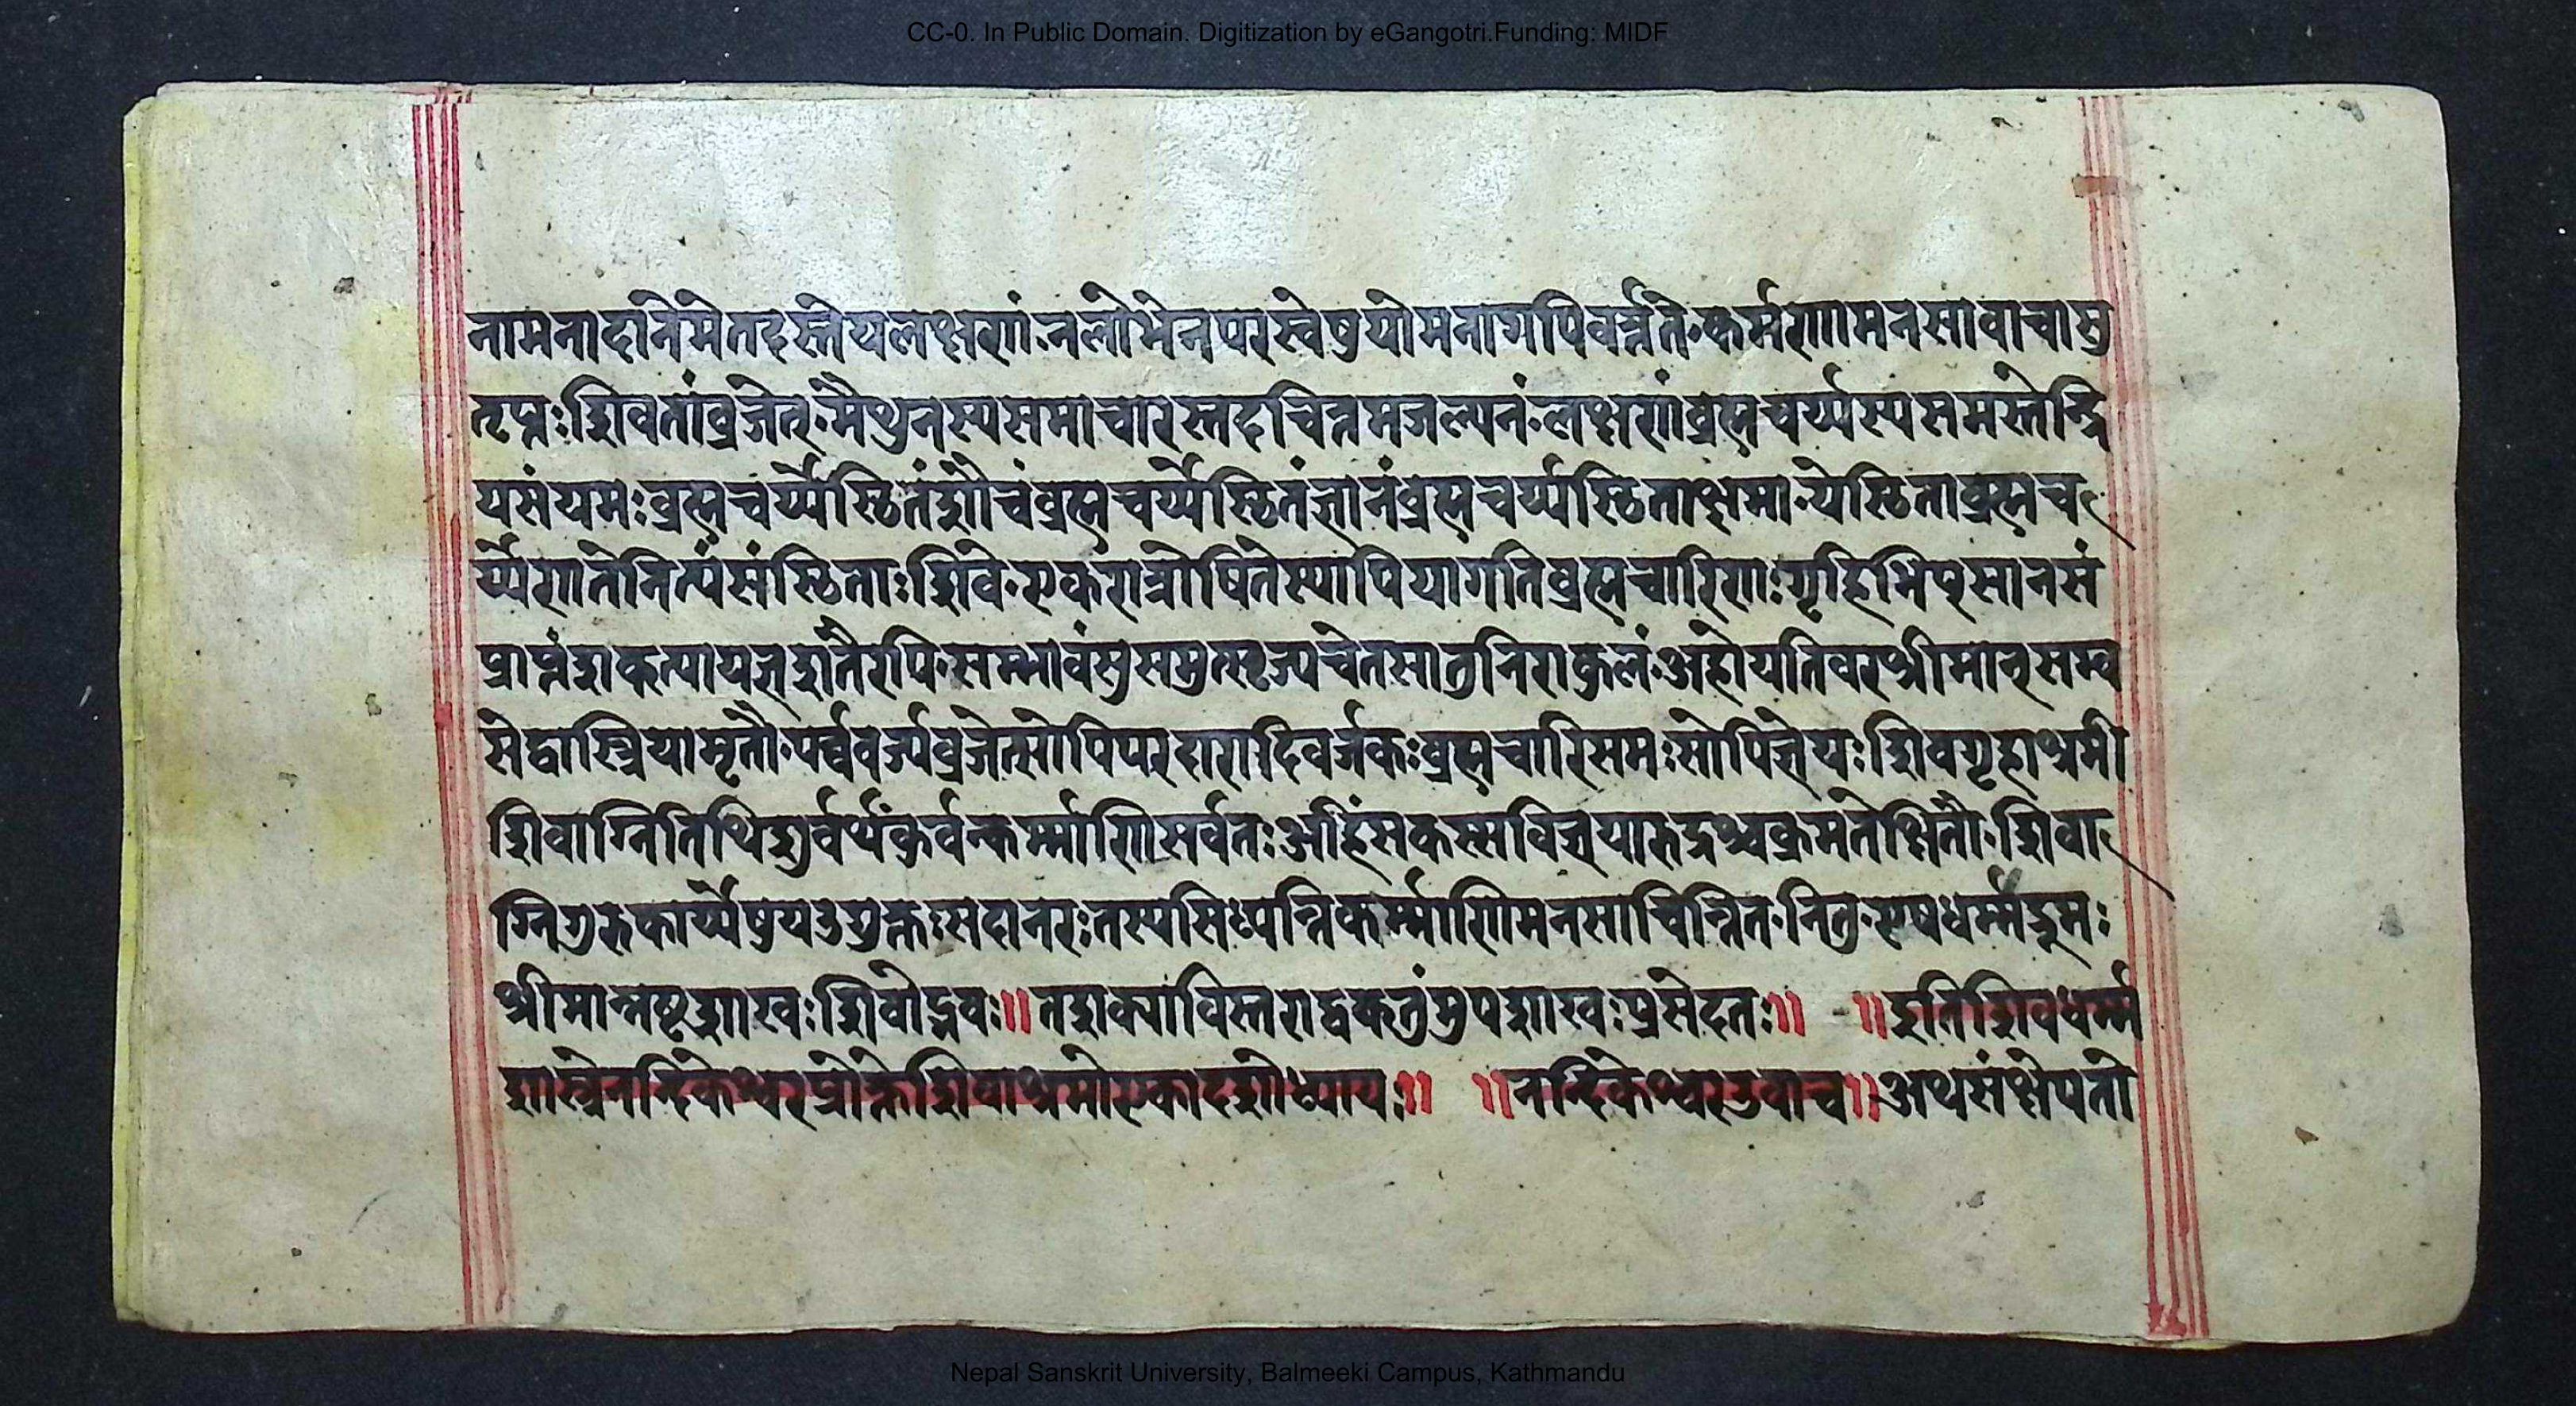 CC-0. In Public Domain. Digitization by eGangotri.Funding: MIDF
नामनादानमेतदस्तेयलक्षणं॰नलोभेनपरस्वेषुयोमनागपिवर्त्तते॰कर्मणामनसावाचासु
तृप्तःशिवतांव्रजेत्॰मैथुनस्यसमाचारस्तदचिन्तमजल्पनं॰लक्षणंब्रह्मचर्य्यस्यसमस्तेन्द्रि
यसंयमःब्रह्मचर्य्येस्थितंशौचंब्रह्मचर्य्येस्थितंज्ञानंब्रह्मचर्य्यस्थिताक्षमान्येस्थिताब्रह्मच
र्य्येणतेनित्यंसंस्थिताःशिवे॰एकरात्रोषितस्यापियागतिब्रह्मचारिणःगृहिभि
प्राप्तंशक्त्यायज्ञशतैरपि॰चेतसातुनिराकुलं॰अहोयतिवरश्रीमान्
सेद्वास्त्रियामृतौ॰पर्व्ववर्ज्यंव्रजेत्सोपिपरदारादिवर्जकःब्रह्मचारिसमःसोपिज्ञेयःशिवगृहाश्रमी
शिवाग्नितिथिकुर्वन्कर्म्माणिसर्वतःअहिंसकस्सविज्ञेयारुद्रश्चक्रमतेक्षितौ॰शिवा
ग्निगुरुकार्य्येषुयउद्युक्तःसदानरःतस्यसिध्यन्तिकर्म्माणिमनसाचिन्तित॰नितु॰एषधर्म्मद्रुमः
श्रीमान्नष्टशाखःशिवोद्भवः॥तशक्याविस्तराद्वक्तुंमुपशाखःप्रसेदतः॥ ॥इतिशिवधर्म्म
शास्त्रेनन्दिकेश्वरप्रोक्तेशिवाश्रमोएकादशोध्यायः॥ ॥नन्दिकेश्वरउवाच॥अथसंक्षेपतो
Nepal Sanskrit University, Balmeeki Campus, Kathmandu